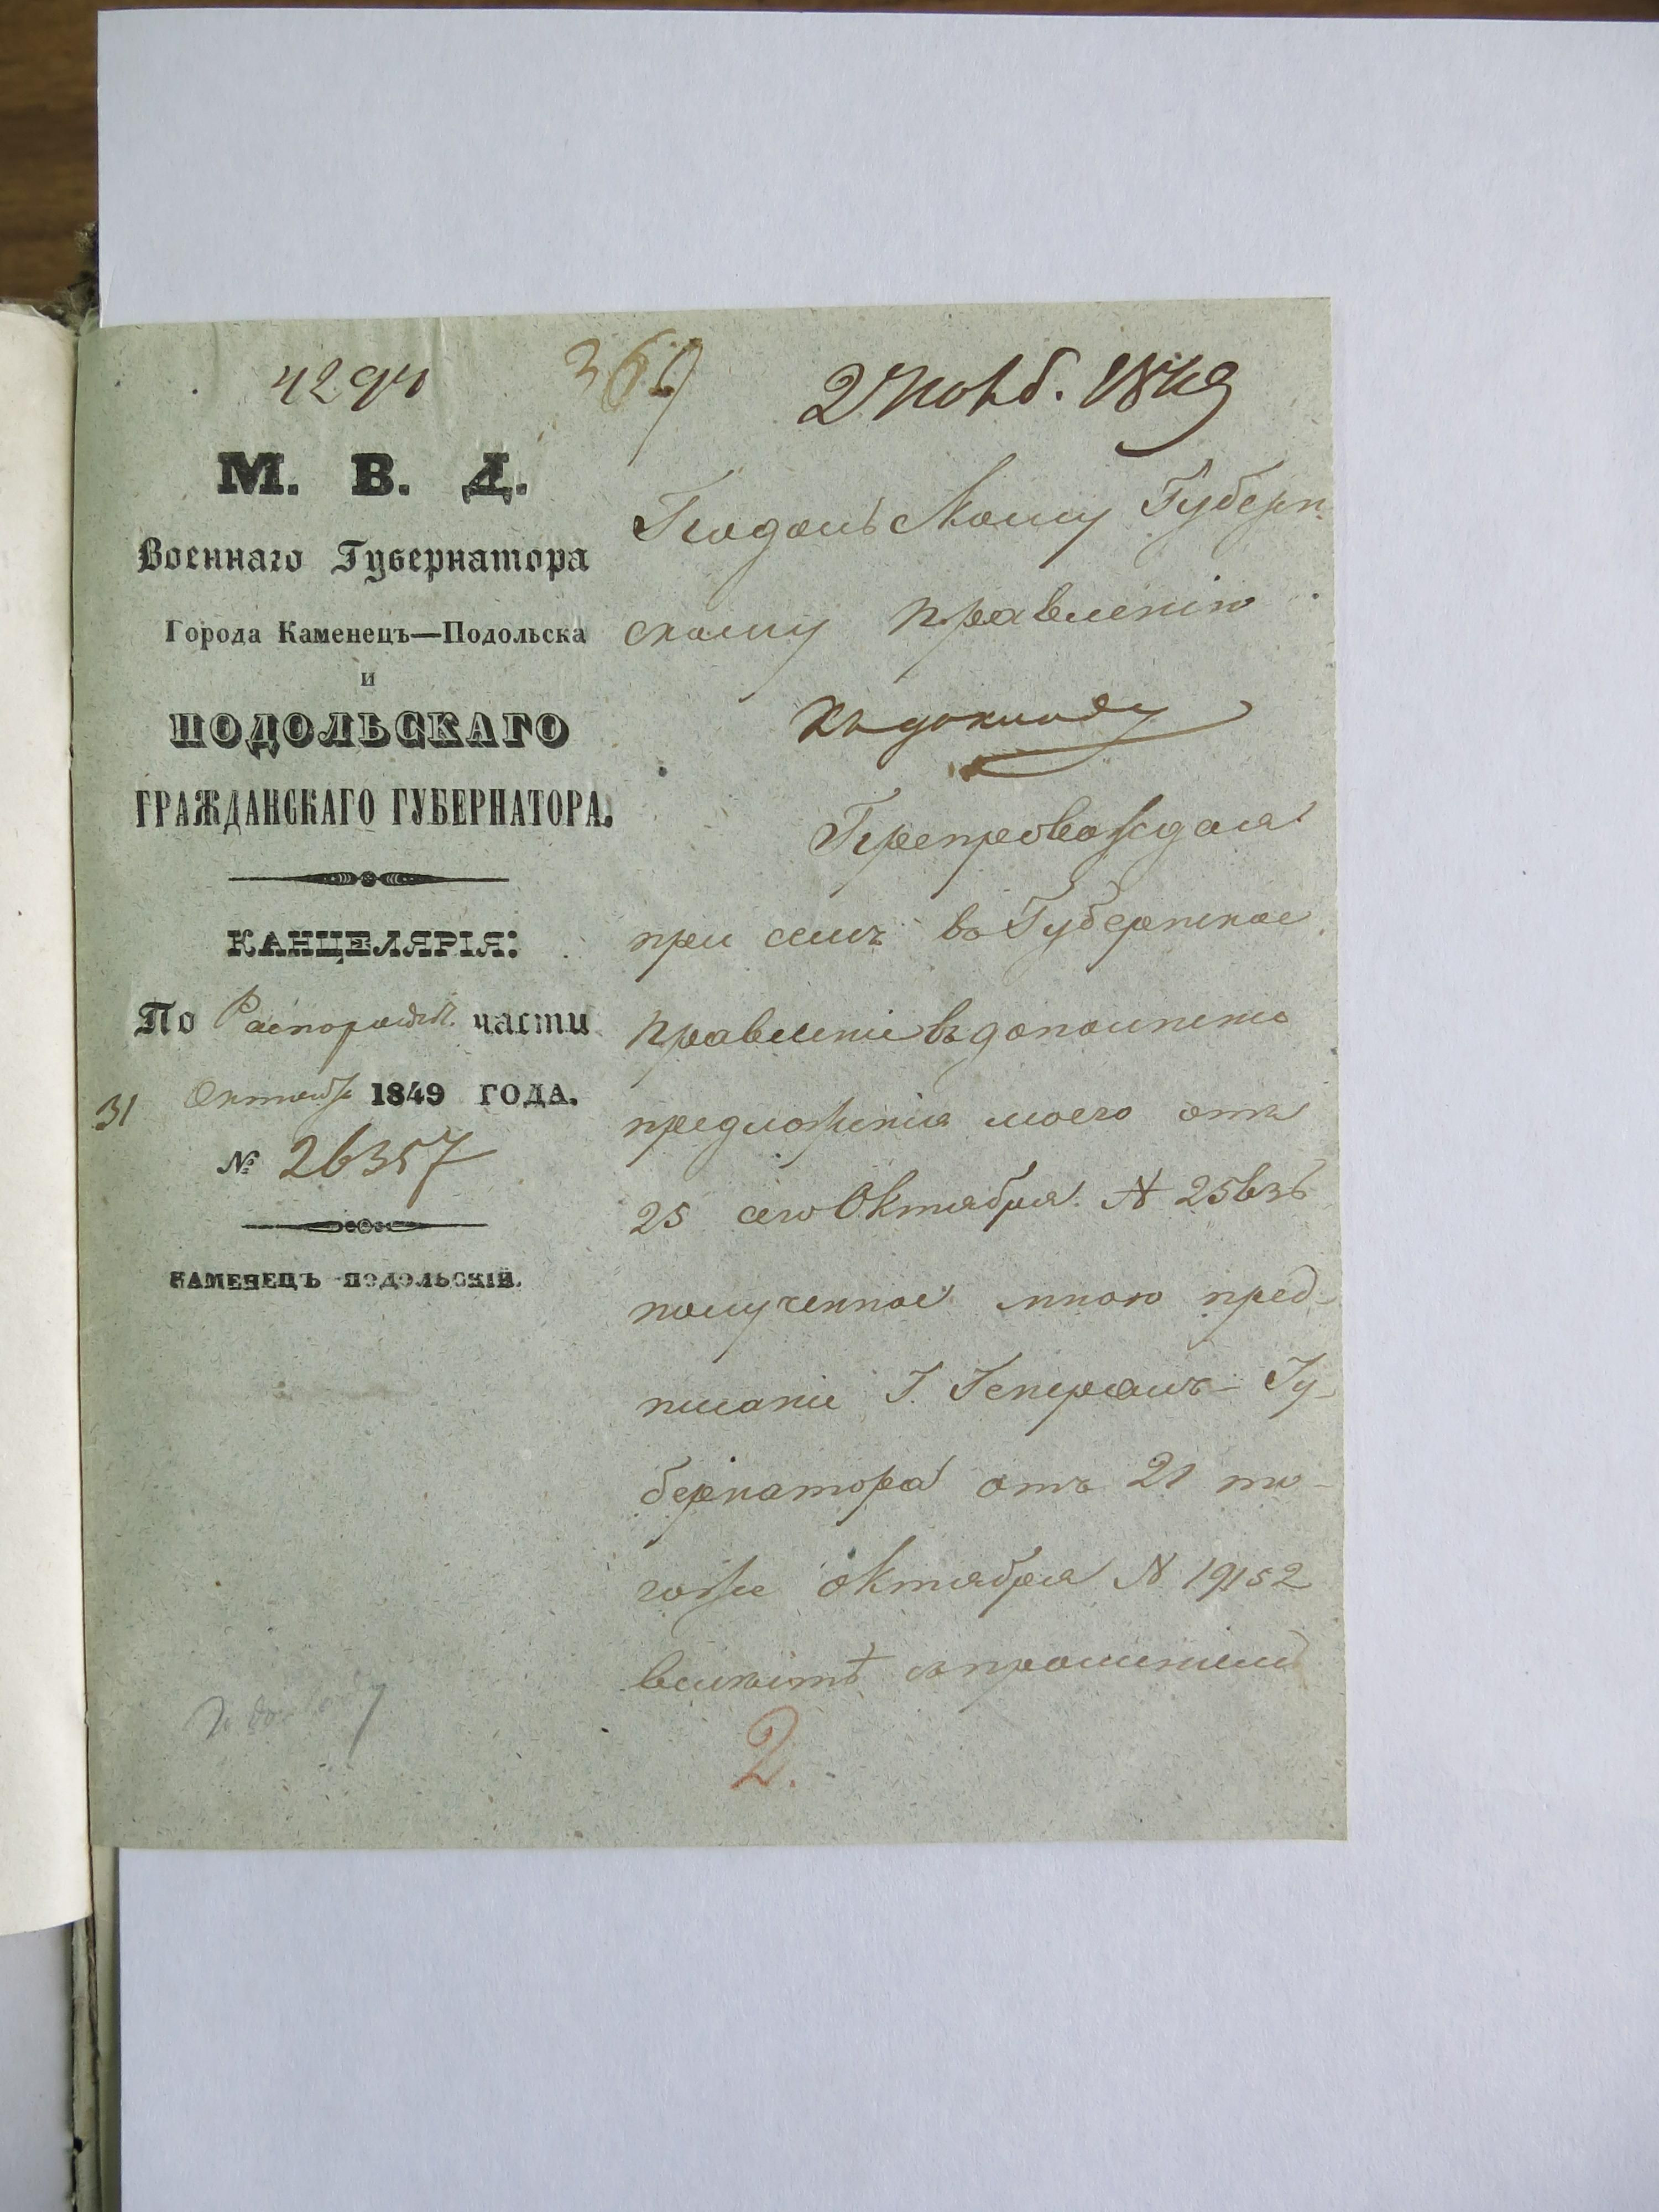 369
2 Нояб. 1849
М. В. Д.
Военнаго Губернатора
Города Каменецъ—Подольска
и
ПОДОЛЬСКАГО
ГРАЖДАНСКАГО ГУБЕРНАТОРА.
КАНЦЕЛЯРІЯ:
По Распорядит. части
31 Октября 1849 ГОДА.
№ 26357
КАМЕНЕЦЪ ПОДОЛЬСКІЙ.
Подольскому Губерн-
скому Правленію
Къ докладу
Препровождая
при семъ въ Губернское
Правленіе въ дополненіе
предложенія моего отъ
25 сего Октября №
полученное мною пред-
писаніе Г. Генералъ-Гу-
бернатора отъ 21 то-
гоже Октября № 19152
вмѣстѣ съ прошеніемъ
2.